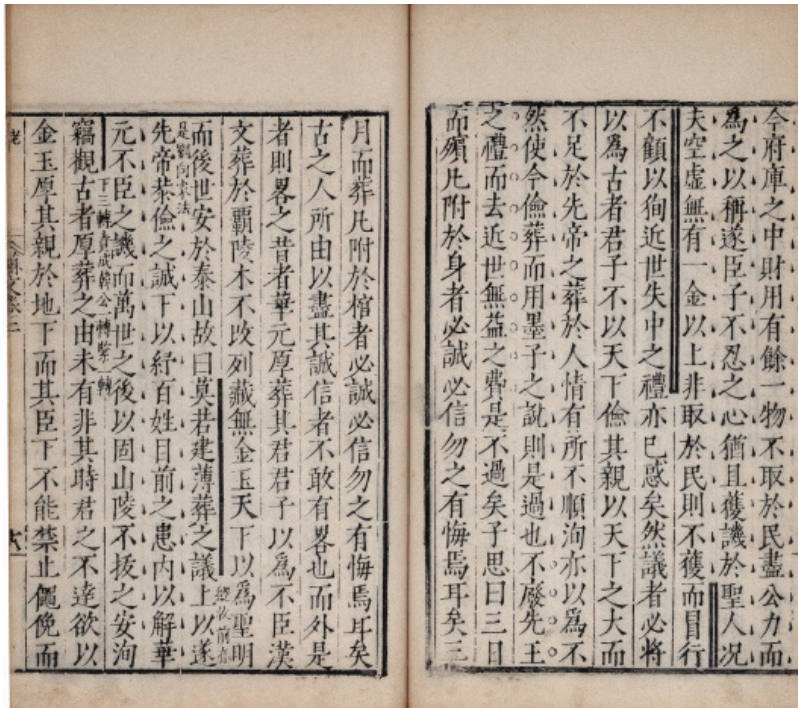 今府庫之中財用有餘一物不取於民盡公力而
為之以稱遂臣子不忍之心猶且獲譏於聖人况
夫空虛無有一金以上非取於民則不獲而冒行
不顧以狥近世失中之禮亦已惑矣然議者必將
以為古者君子不以天下儉其親以天下之大而
不足於先帝之葬於人情有所不順洵亦以為不
然使今儉葬而用墨子之說則是過也不廢先王
之禮而去近世無益之費是不過矣子思曰三日
而殯凡附於身者必誠必信勿之有悔焉耳矣三
月而葬凡附於棺者必誠必信勿之有悔焉耳矣
古之人所由以盡其誠信者不敢有畧也而外是
者則畧之昔者華元厚葬其君君子以爲不臣漢
文葬於霸陵木不改列藏無金玉天下以爲聖明
而後世安於泰山故曰莫若建薄葬之議上以遂
先帝恭儉之誠下以紓百姓目前之患內以解華
元不臣之譏而萬世之後以固山陵不拔之安洵
下三轉責成韓公一轉緊一轉
竊觀古者厚葬之由未有非其時君之不達欲以
金玉厚其親於地下而其臣下不能禁止僶俛而
老
六